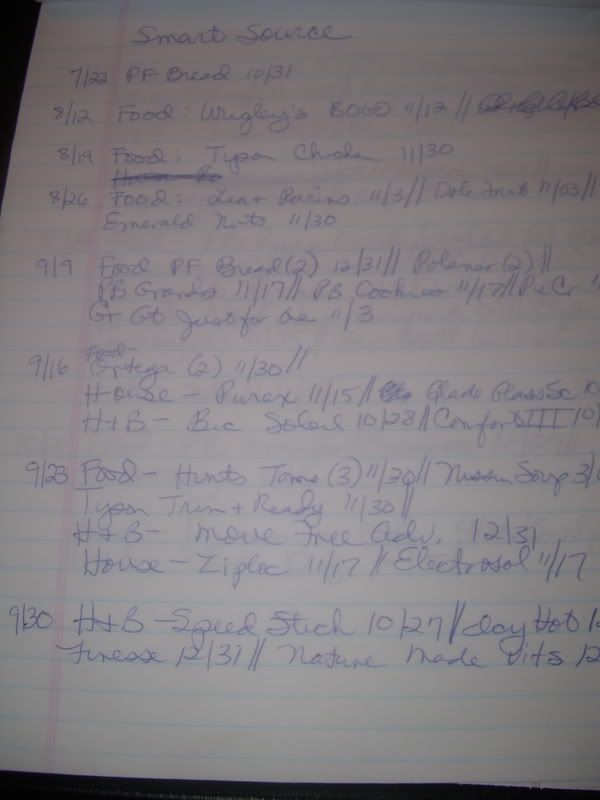 Smart Source
7/22 PF Bread 10/31
8/12 Food: Wrigley's BOGO 11/12 //
8/19 Food: Tyson Chicken 11/30
8/26 Food: Lea + Perrins 11/3 // Dole Fruit 11/03 //
Emerald Nuts 11/30
9/9 Food PF Bread (2) 12/31 // Polaner (2) //
PB Grands 11/17 // PB Cookies 11/17 // Pie Cr
Gr Gt Just for One 11/3
9/16 Food-
Ortega (2) 11/30 //
House - Purex 11/15 // Glade Glass Sc 10
H+B - Bic Soleil 10/28 // Comfort III 10/
9/23 Food - Hunts Toms (3) 11/30 // Nissin Soup 3/
Tyson Trim + Ready 11/30 //
H+B - Move Free Adv. 12/31
House - Ziploc 11/17 // Electrasol 11/17
9/30 H+B - Speed Stick 10/27 // Icy Hot 1
Finesse 12/31 // Nature Made Vits 12